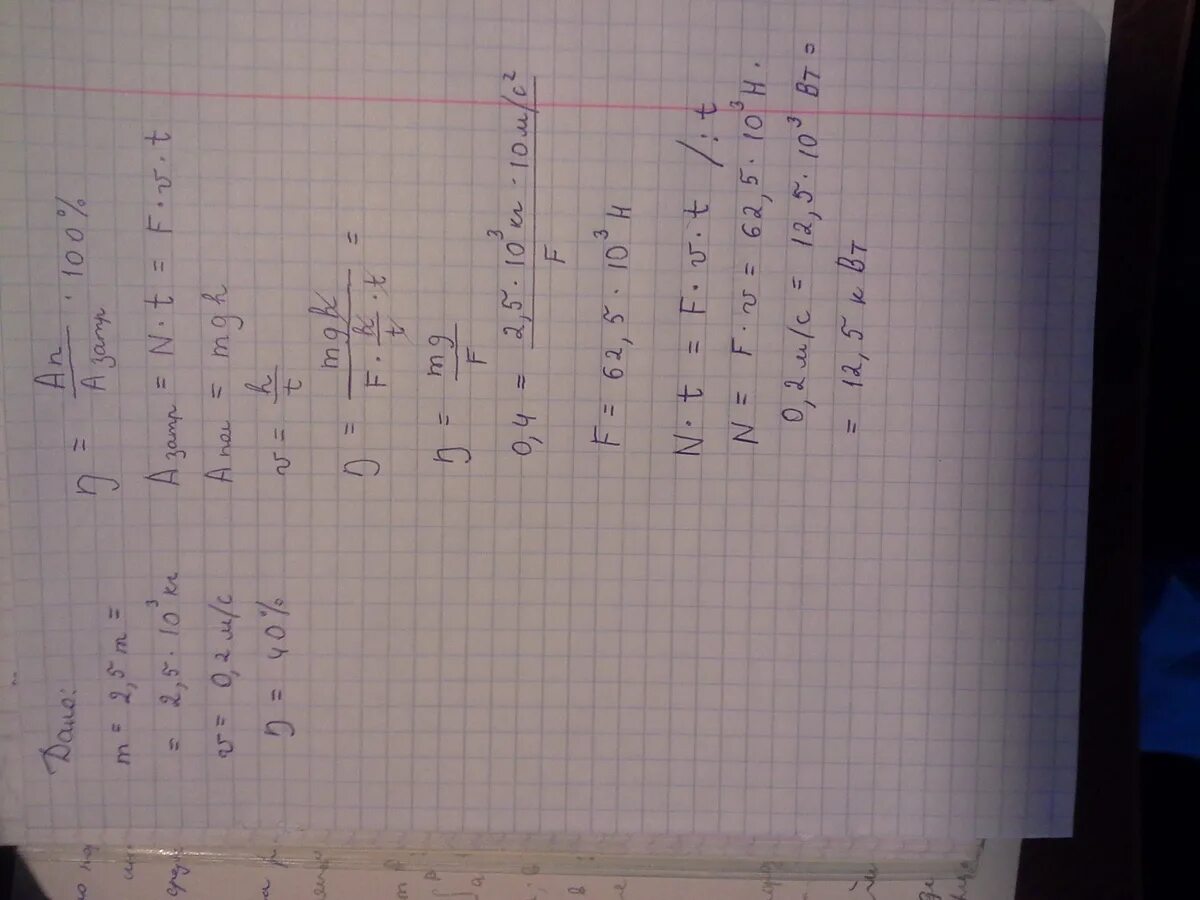 Дано:
m = 2,5 т =
= 2,5 · 10³ кг
v = 0,2 м/с
η = 40%
η = Aп / Aзатр · 100%
Aзатр = N · t = F · v · t
Aпол = mgh
v = h / t
η = mgh / F · h / t · t =
η = mg / F
0,4 = 2,5 · 10³ кг · 10 м/с² / F
F = 62,5 · 10³ Н
N · t = F · v · t /: t
N = F · v = 62,5 · 10³ Н ·
0,2 м/с = 12,5 · 10³ Вт =
= 12,5 кВт